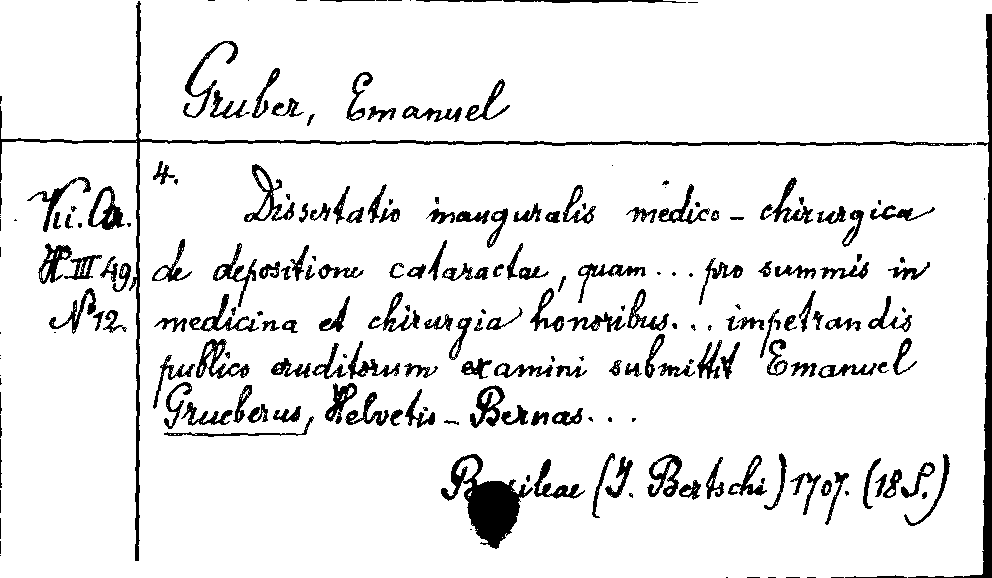 Gruber, Emanuel
4.
H.III 49,
N° 12.
Dissertatio inauguralis medico-chirurgica
de depositione cataractae, quam... pro summis in
medicina et chirurgia honoribus... impetrandis
publico eruditorum examini submittit Emanuel
Grueberus, Helvetio-Bernas...
Basileae (J. Bertschi) 1707. (18 S.)